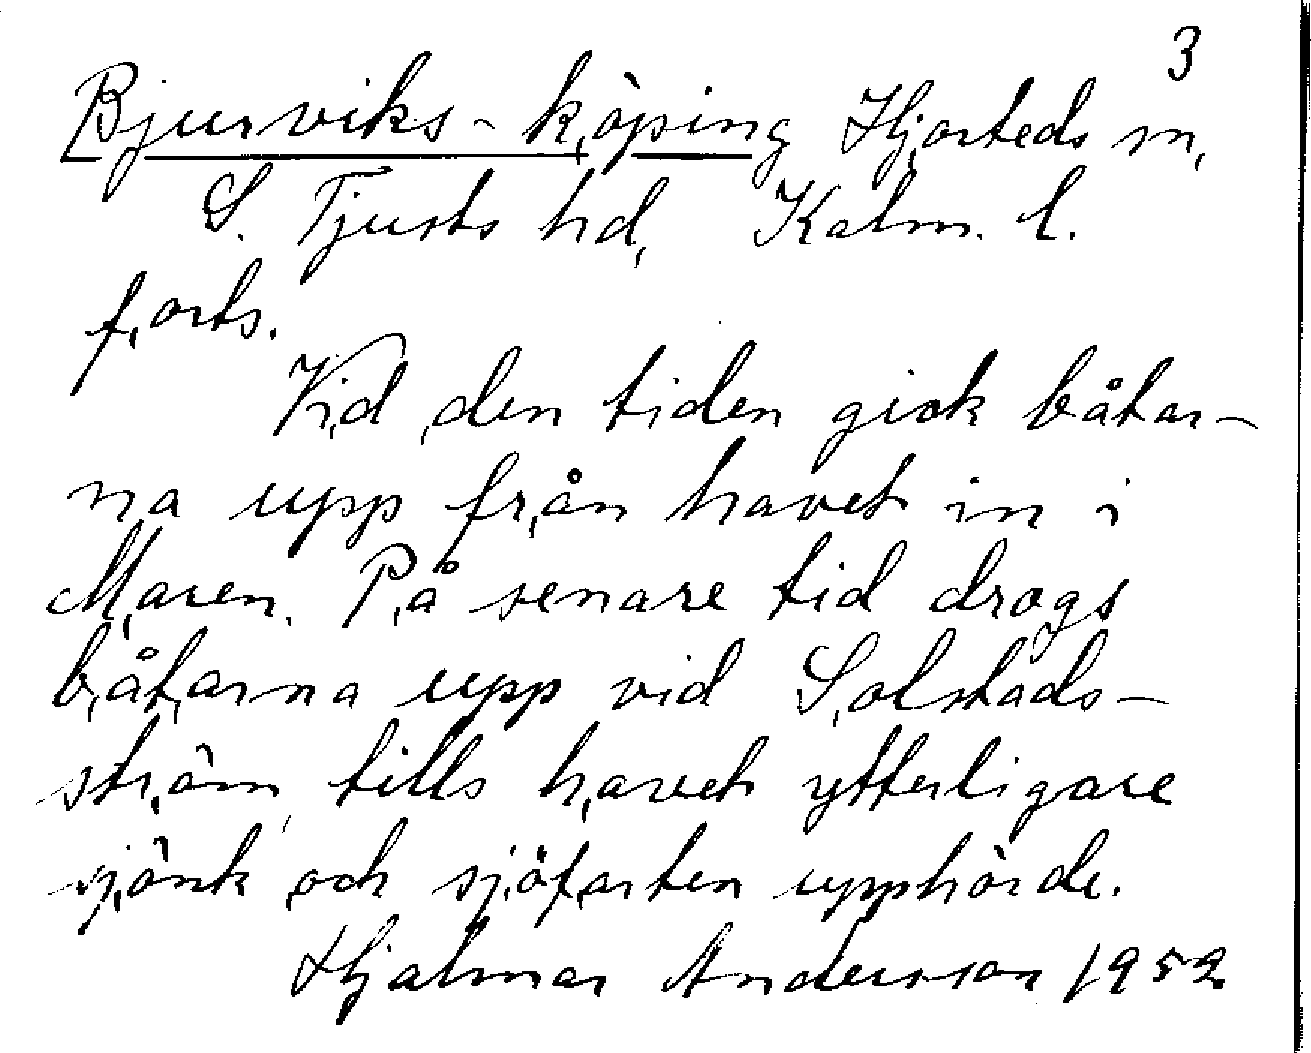 3
Bjurviks-köping Hjorteds sn,
S. Tjusts hd, Kalm. l.
forts.
Vid den tiden gick båtar-
na upp från havet in i
Maren. På senare tid drogs
båtarna upp vid Solstads-
ström, tills havet ytterligare
sjönk och sjöfarten upphörde.
Hjalmar Andersson 1952